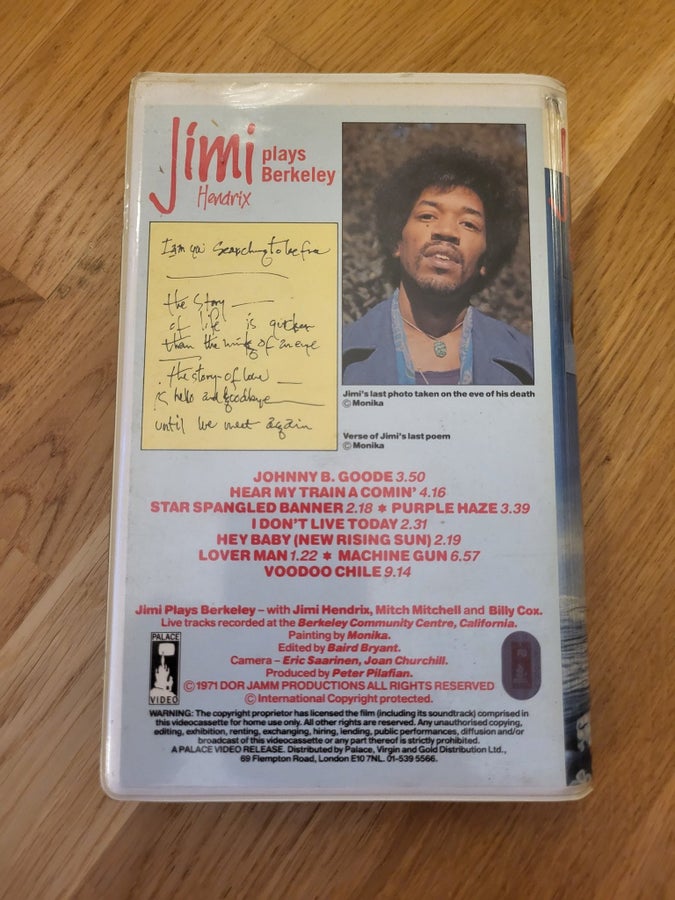 Jimi
plays
Berkeley
Hendrix
the story
of life is quicker
than the wink of an eye
the story of love
is hello and goodbye
until we meet again
Jimi's last photo taken on the eve of his death
© Monika
Verse of Jimi's last poem
© Monika
JOHNNY B. GOODE 3.50
HEAR MY TRAIN A COMIN' 4.16
STAR SPANGLED BANNER 2.18 * PURPLE HAZE 3.39
I DON'T LIVE TODAY 2.31
HEY BABY (NEW RISING SUN) 2.19
LOVER MAN 1.22 * MACHINE GUN 6.57
VOODOO CHILE 9.14
Jimi Plays Berkeley – with Jimi Hendrix, Mitch Mitchell and Billy Cox.
Live tracks recorded at the Berkeley Community Centre, California.
Painting by Monika.
Edited by Baird Bryant.
Camera – Eric Saarinen, Joan Churchill.
Produced by Peter Pilafian.
© 1971 DOR JAMM PRODUCTIONS ALL RIGHTS RESERVED
© International Copyright protected.
PALACE
VIDEO
WARNING: The copyright proprietor has licensed the film (including its soundtrack) comprised in
this videocassette for home use only. All other rights are reserved. Any unauthorised copying,
editing, exhibition, renting, exchanging, hiring, lending, public performances, diffusion and/or
broadcast of this videocassette or any part thereof is strictly prohibited.
A PALACE VIDEO RELEASE. Distributed by Palace, Virgin and Gold Distribution Ltd.,
69 Flempton Road, London E10 7NL. 01-539 5566.